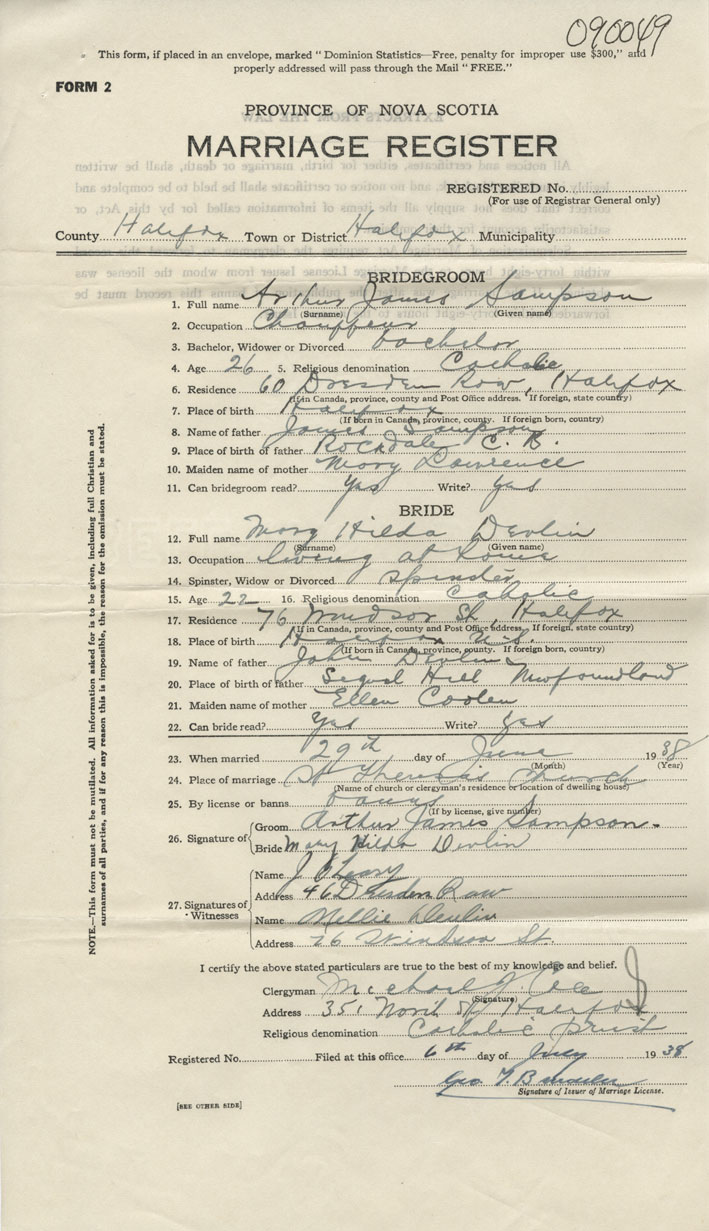 090049
This form, if placed in an envelope, marked “Dominion Statistics—Free, penalty for improper use $300,” and
properly addressed will pass through the Mail “FREE.”
FORM 2
PROVINCE OF NOVA SCOTIA
MARRIAGE REGISTER
REGISTERED No.
(For use of Registrar General only)
County Halifax Town or District Halifax Municipality
BRIDEGROOM
1. Full name Arthur James Sampson
(Surname) (Given name)
2. Occupation Chauffeur
3. Bachelor, Widower or Divorced bachelor
4. Age 26 5. Religious denomination Catholic
6. Residence 60 Dresden Row, Halifax
(If in Canada, province, county and Post Office address. If foreign, state country)
7. Place of birth Halifax
(If born in Canada, province, county. If foreign born, country)
8. Name of father James Sampson
9. Place of birth of father Rockdale C. B.
10. Maiden name of mother Mary Lawrence
11. Can bridegroom read? Yes Write? Yes
BRIDE
12. Full name Mary Hilda Devlin
(Surname) (Given name)
13. Occupation living at home
14. Spinster, Widow or Divorced spinster
15. Age 22 16. Religious denomination Catholic
17. Residence 76 Windsor St, Halifax
(If in Canada, province, county and Post Office address. If foreign, state country)
18. Place of birth Halifax N.S.
(If born in Canada, province, county. If foreign born, country)
19. Name of father John Devlin
20. Place of birth of father Signal Hill Newfoundland
21. Maiden name of mother Ellen Coolen
22. Can bride read? Yes Write? Yes
23. When married 29th day of June 1938
(Month) (Year)
24. Place of marriage St Theresa's Church
(Name of church or clergyman's residence or location of dwelling house)
25. By license or banns banns
(If by license, give number)
26. Signature of Groom Arthur James Sampson.
Bride Mary Hilda Devlin
27. Signatures of Witnesses
Name J O'Leary
Address 46 Dresden Row
Name Nellie Devlin
Address 76 Windsor St.
I certify the above stated particulars are true to the best of my knowledge and belief.
Clergyman Michael J
(Signature)
Address 351 North St Halifax
Religious denomination Catholic priest
Registered No. Filed at this office 6th day of July 1938
Geo
Signature of Issuer of Marriage License.
[SEE OTHER SIDE]
NOTE.—This form must not be mutilated. All information asked for is to be given, including full Christian and
surnames of all parties, and if for any reason this is impossible, the reason for the omission must be stated.